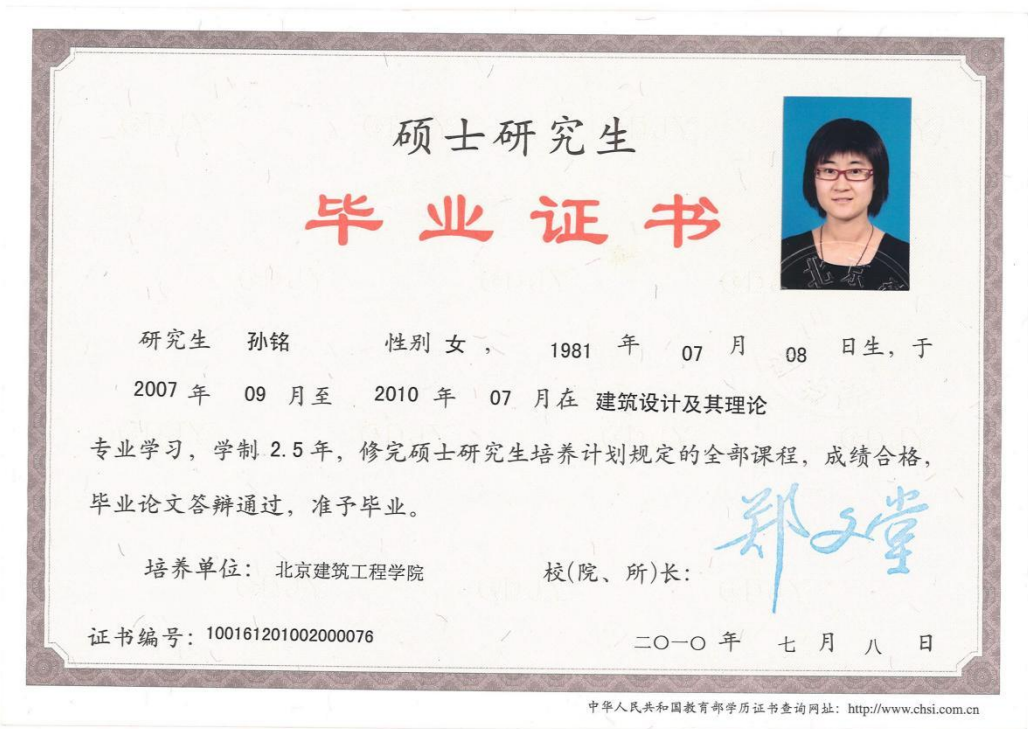 硕士研究生
毕业证书
北京
研究生 孙铭 性别 女 ， 1981 年 07 月 08 日生，于
2007 年 09 月至 2010 年 07 月在 建筑设计及其理论
专业学习，学制 2.5 年，修完硕士研究生培养计划规定的全部课程，成绩合格，
毕业论文答辩通过，准予毕业。
郑文堂
培养单位： 北京建筑工程学院 校(院、所)长：
证书编号：100161201002000076 二〇一〇 年 七 月 八 日
中华人民共和国教育部学历证书查询网址：http://www.chsi.com.cn